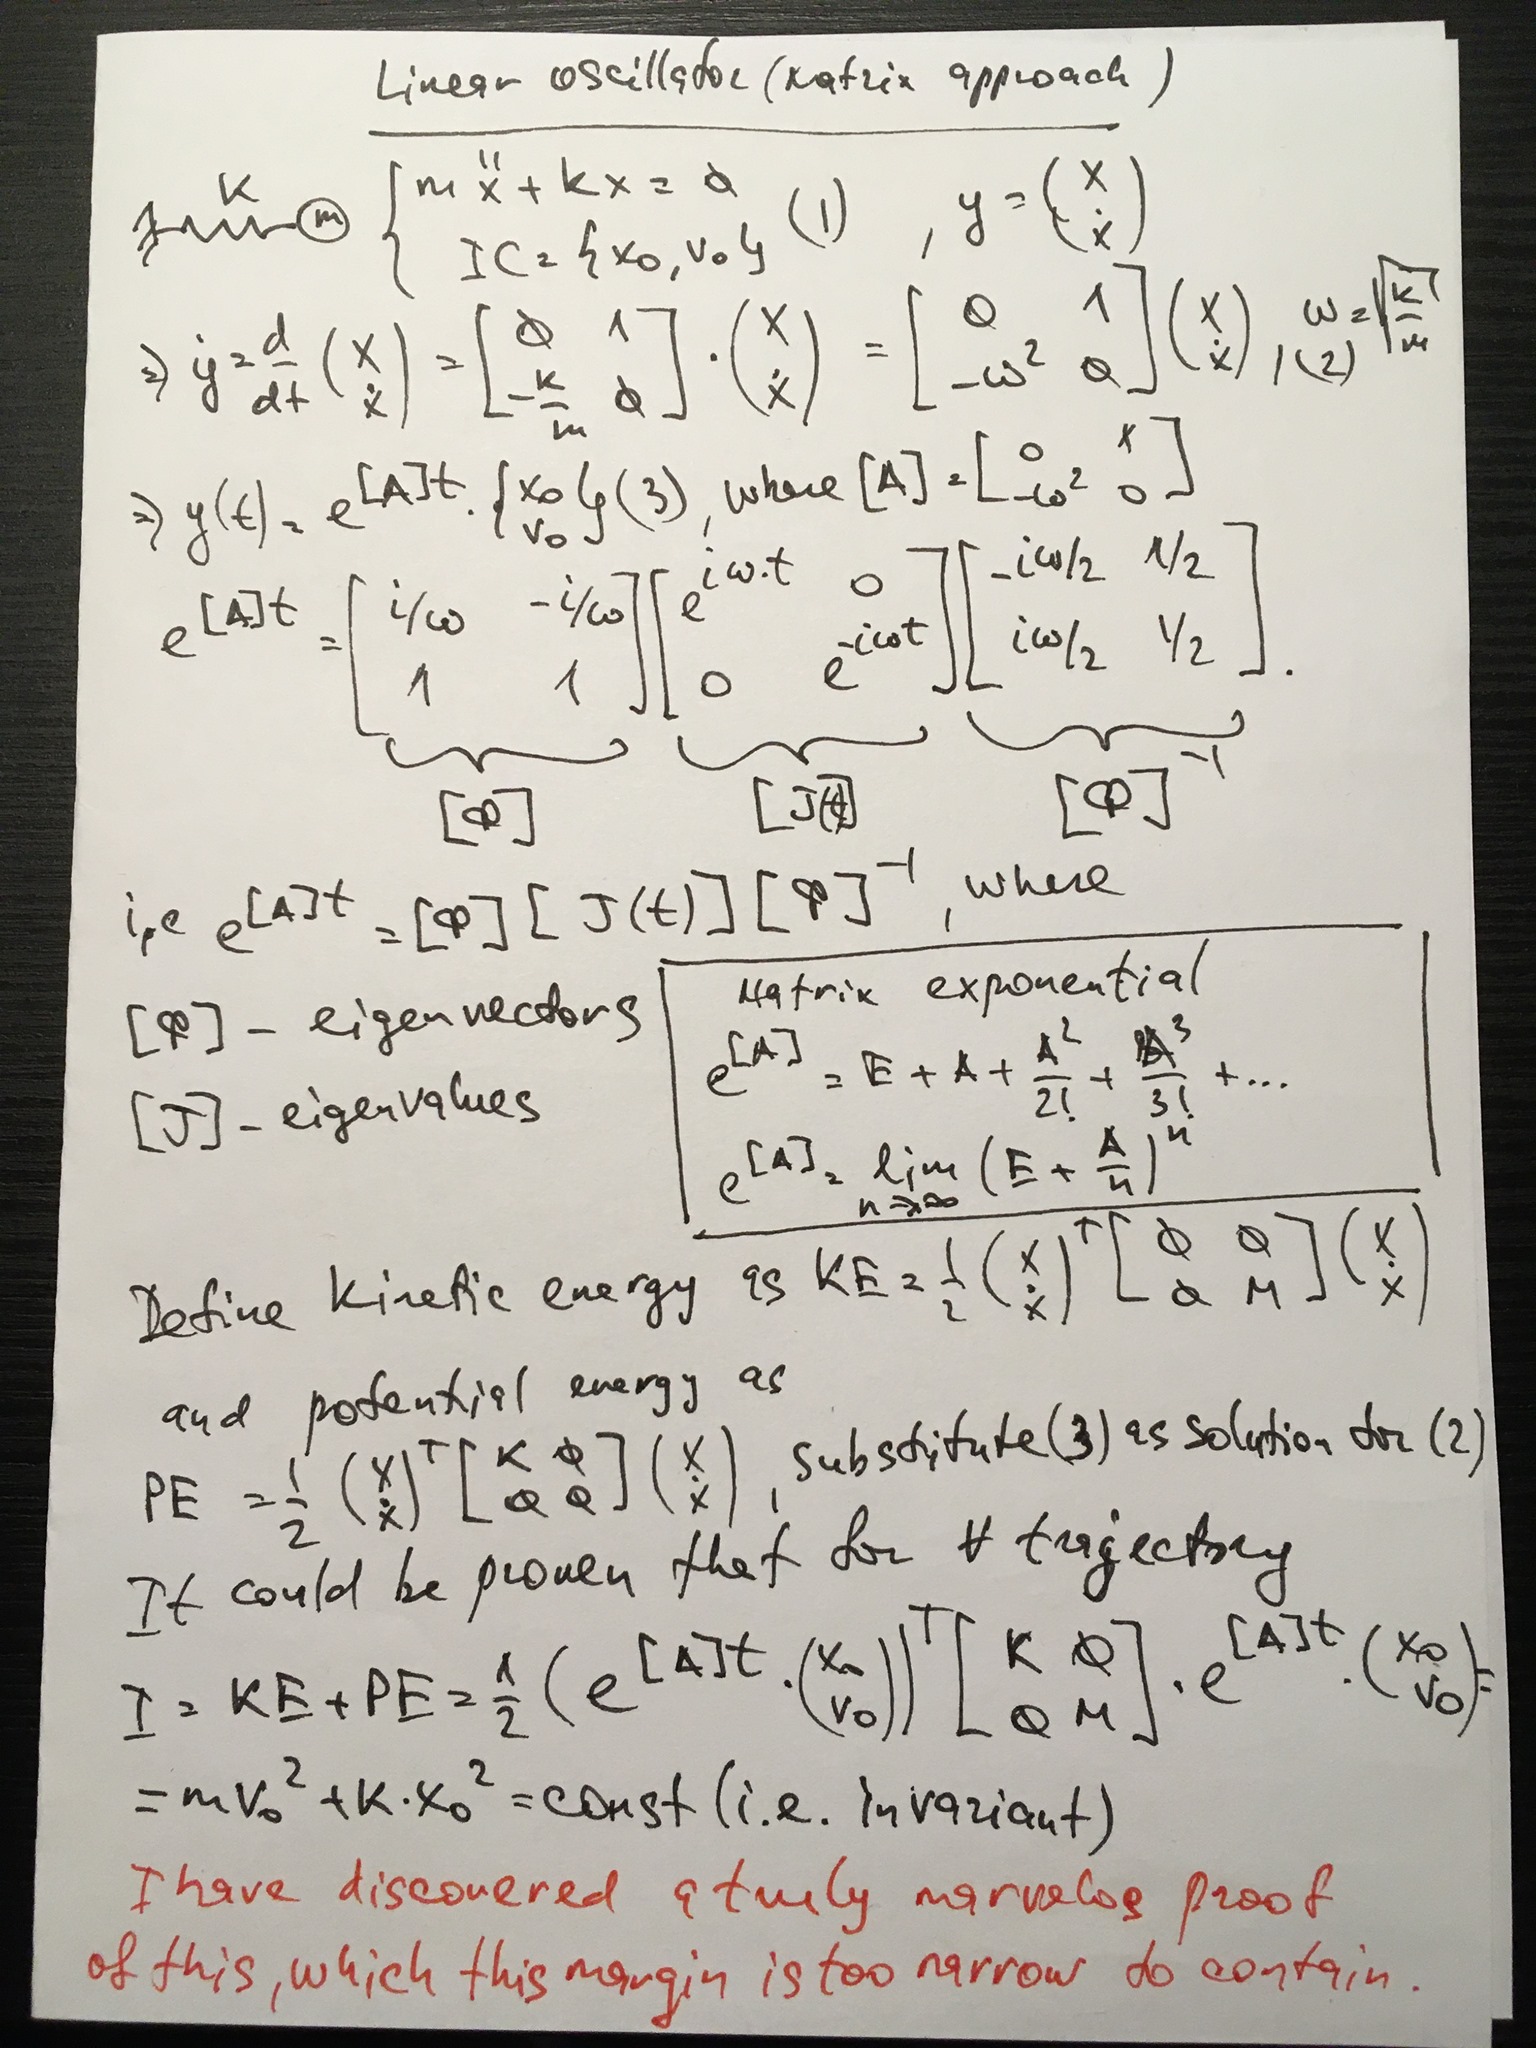 Linear oscillator (Matrix approach)
K m { m ẍ + kx = 0 IC = {x₀, v₀} (1) , y = (x ẋ)
⇒ ẏ = d/dt (x ẋ) = [0 1 -k/m 0] · (x ẋ) = [0 1 -ω² 0] (x ẋ), (2) ω = √k/m
⇒ y(t) = e^[A]t · {x₀ v₀} (3), where [A] = [0 1 -ω² 0]
e^[A]t = [i/ω -i/ω 1 1] [e^iω·t 0 0 e^-iωt] [-iω/2 1/2 iω/2 1/2].
[Φ] [J(t)] [Φ]⁻¹
i,e e^[A]t = [Φ] [J(t)] [Φ]⁻¹, where
[Φ] - eigenvectors
[J] - eigenvalues
Matrix exponential
e^[A] = E + A + A²/2! + A³/3! + ...
e^[A] = lim n→∞ (E + A/n)ⁿ
Define kinetic energy as KE = 1/2 (x ẋ)ᵀ [0 0 0 M] (x ẋ)
and potential energy as
PE = 1/2 (x ẋ)ᵀ [K 0 0 0] (x ẋ), substitute (3) as solution for (2)
It could be proven that for ∀ trajectory
I = KE + PE = 1/2 (e^[A]t · (x₀ v₀))ᵀ [K 0 0 M] · e^[A]t · (x₀ v₀) =
= mv₀² + K·x₀² = const (i.e. invariant)
I have discovered a truely marvelos proof
of this, which this margin is too narrow to contain.